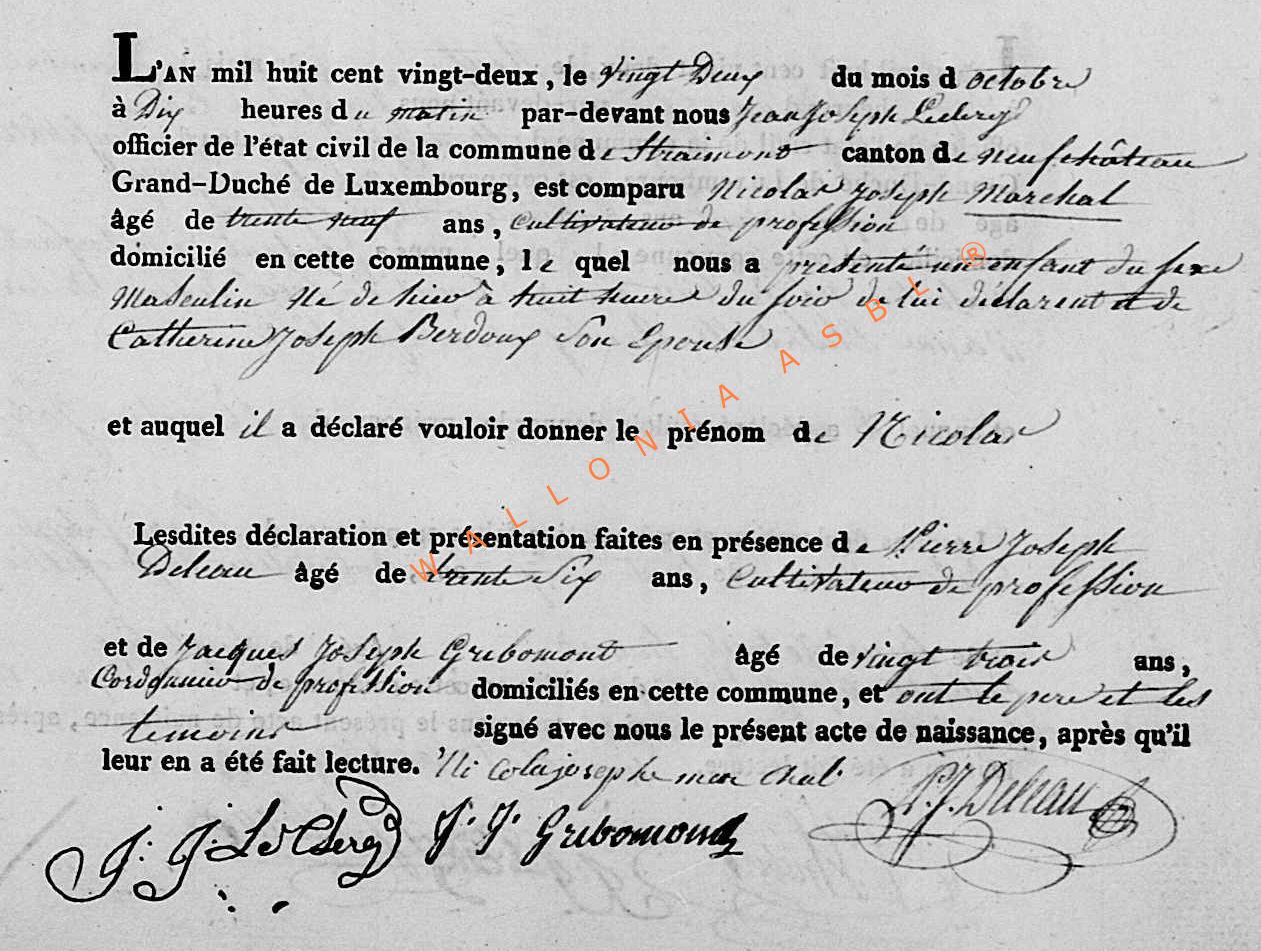 L'AN mil huit cent vingt-deux, le vingt Deux du mois d octobre
à Dix heures du matin par-devant nous Jean Joseph Leclercq
officier de l'état civil de la commune de Straimont canton de neufchâteau
Grand-Duché de Luxembourg, est comparu Nicolas Joseph Marechal
âgé de trente neuf ans, Cultivateur de profession
domicilié en cette commune, le quel nous a présenté un enfant du sexe
Masculin Né de hier à huit heure du soir de lui déclarent et de
Catherine Joseph Berdoux Son Epouse
et auquel il a déclaré vouloir donner le prénom de Nicolas
Lesdites déclaration et présentation faites en présence de Pierre Joseph
Deleau âgé de trente Six ans, Cultivateur de profession
et de Jacques Joseph Gribomont âgé de vingt trois ans,
Cordonnier de profession domiciliés en cette commune, et ont le pere et les
temoins signé avec nous le présent acte de naissance, après qu'il
leur en a été fait lecture. Ni colajoseph mare chal
P. J. Deleau
J. J. Le Clercq J. J. Gribomond
WALLONIA ASBL ®